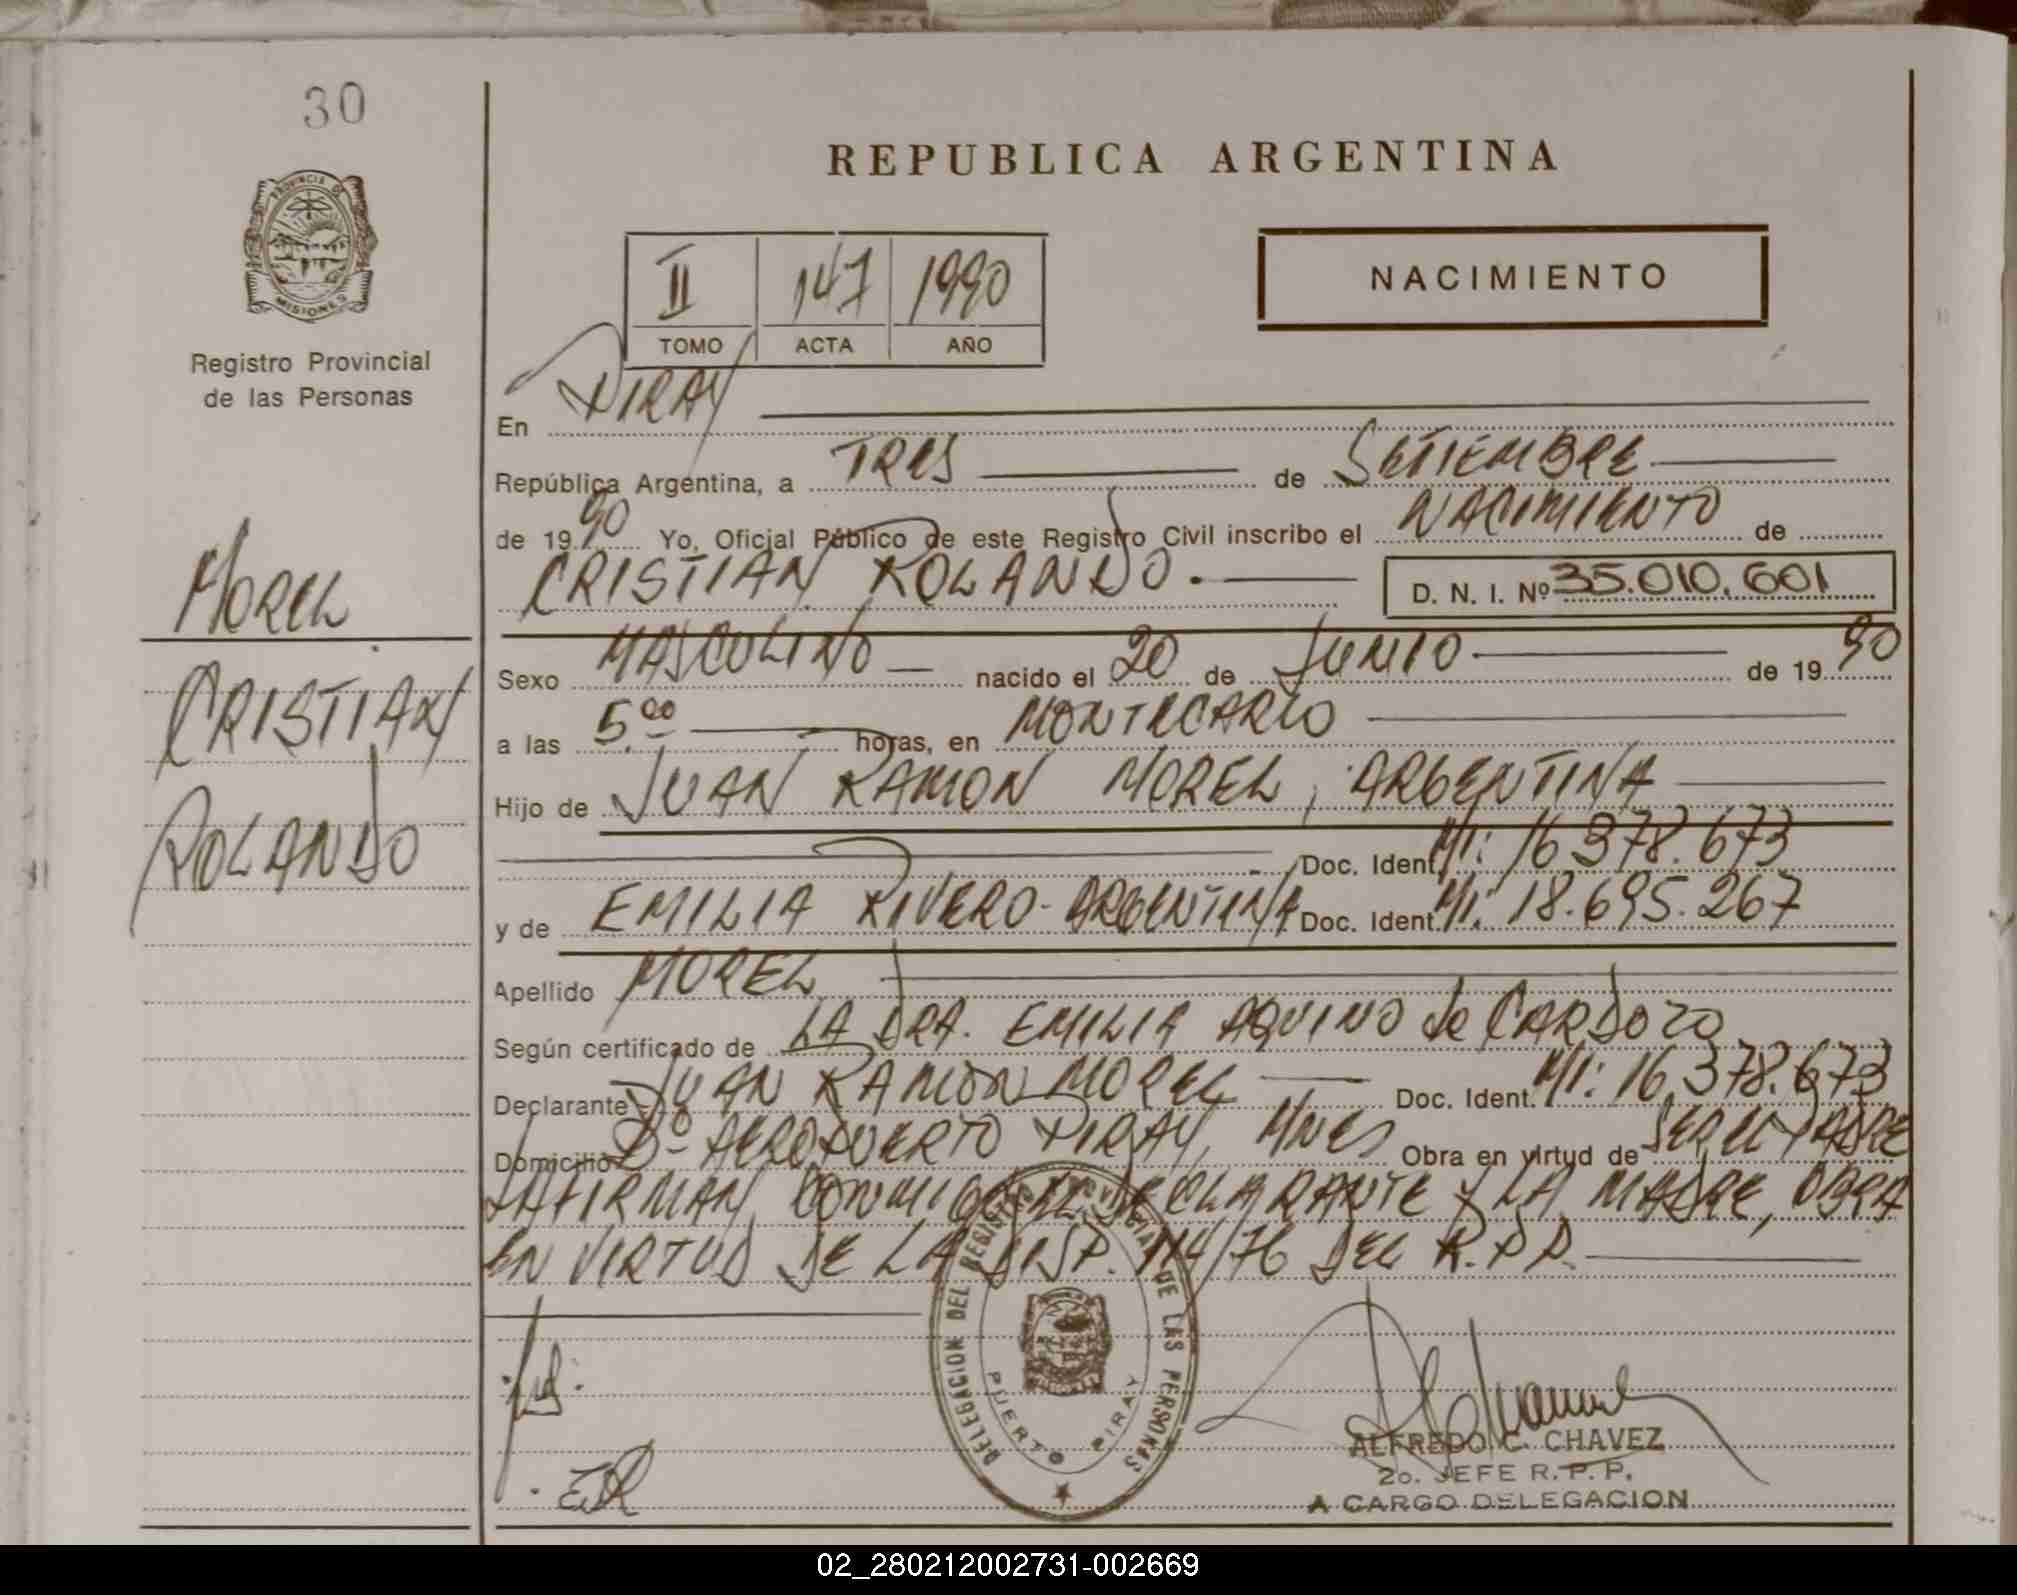 30
REPUBLICA ARGENTINA
PROVINCIA DE
MISIONES
Registro Provincial
de las Personas
II 147 1990
TOMO ACTA AÑO
NACIMIENTO
En PIRAY
República Argentina, a TRES de SETIEMBRE
de 1990 Yo, Oficial Público de este Registro Civil inscribo el NACIMIENTO de
CRISTIAN ROLANDO. D. N. I. Nº 35.010.601
MOREL
CRISTIAN
ROLANDO
Sexo MASCULINO nacido el 20 de JUNIO de 1990
a las 5.00 horas, en MONTECARLO
Hijo de JUAN RAMON MOREL, ARGENTINA
Doc. Ident. MI: 16.378.673
y de EMILIA RIVERO - ARGENTINA Doc. Ident. MI: 18.695.267
Apellido MOREL
Según certificado de LA DRA. EMILIA AQUINO de CARDOZO
Declarante JUAN RAMON MOREL Doc. Ident. MI: 16.378.673
Domicilio Bº AEROPUERTO PIRAY, MNES Obra en virtud de SER EL PADRE
FIRMAN CONMIGO EL DECLARANTE Y LA MADRE, OBRA
EN VIRTUD DE LA DISP. 114/76 DEL R.P.P.
DELEGACION DEL REGISTRO PROVINCIAL DE LAS PERSONAS
PUERTO PIRAY
ALFREDO C. CHAVEZ
2o. JEFE R. P. P.
A CARGO DELEGACION
02_280212002731-002669